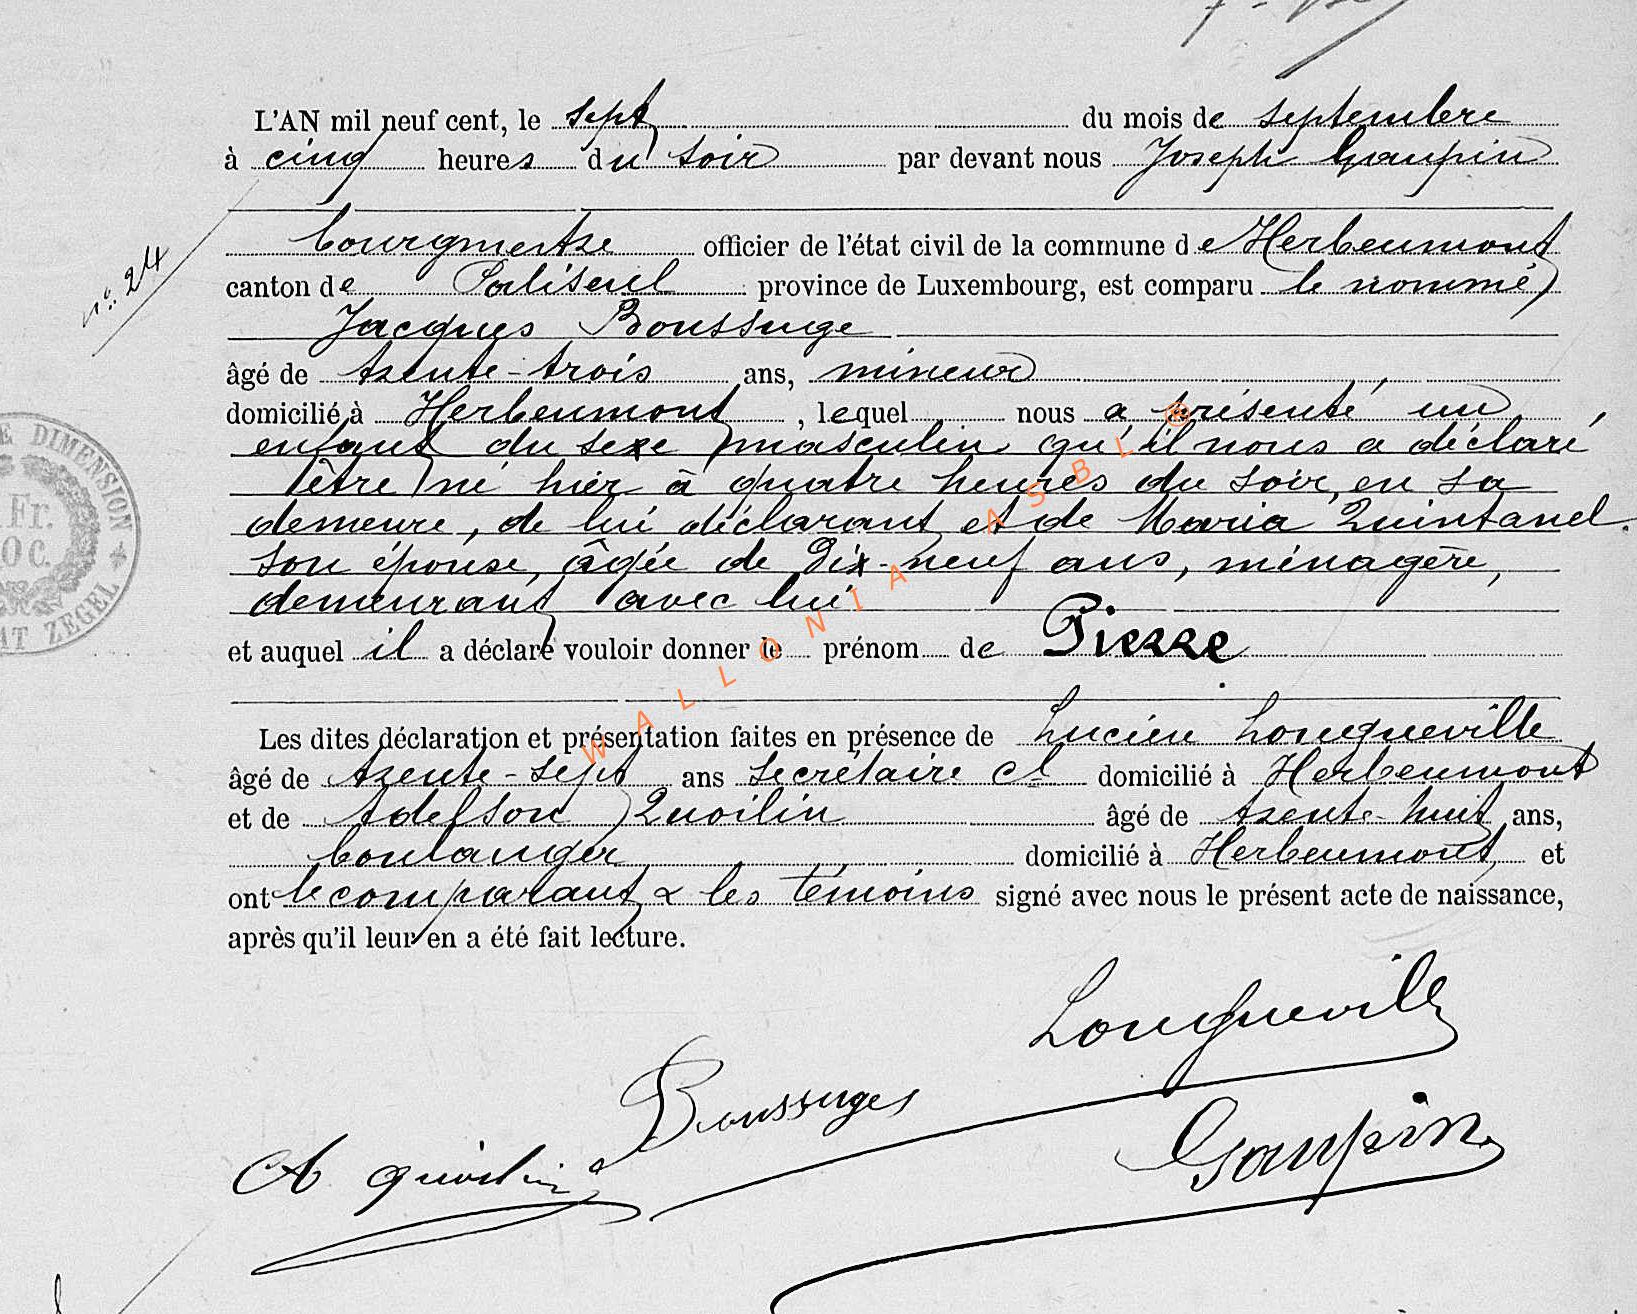 L'AN mil neuf cent, le sept du mois de septembre
à cinq heures du soir par devant nous Joseph Gaupin
bourgmestre officier de l'état civil de la commune de Herbeumont
n° 24
canton de Paliseul province de Luxembourg, est comparu le nommé
Jacques Boussuge
âgé de trente-trois ans, mineur
domicilié à Herbeumont, lequel nous a présenté un
enfant du sexe masculin qu'il nous a déclaré
être né hier à quatre heures du soir, en sa
demeure, de lui déclarant et de Maria Quintanel.
son épouse, âgée de Dix-neuf ans, ménagère,
demeurant avec lui
E DIMENSION
Fr.
0 C.
AT ZEGEL
et auquel il a déclaré vouloir donner le prénom de Pierre
Les dites déclaration et présentation faites en présence de Lucien Longueville
âgé de trente-sept ans secrétaire cl domicilié à Herbeumont
et de Adelson Quoilin âgé de trente-huit ans,
boulanger domicilié à Herbeumont, et
ont le comparant & les témoins signé avec nous le présent acte de naissance,
après qu'il leur en a été fait lecture.
Longueville
Boussuges
Gaupin
A Quoilin
WALLONIA ASBL ®